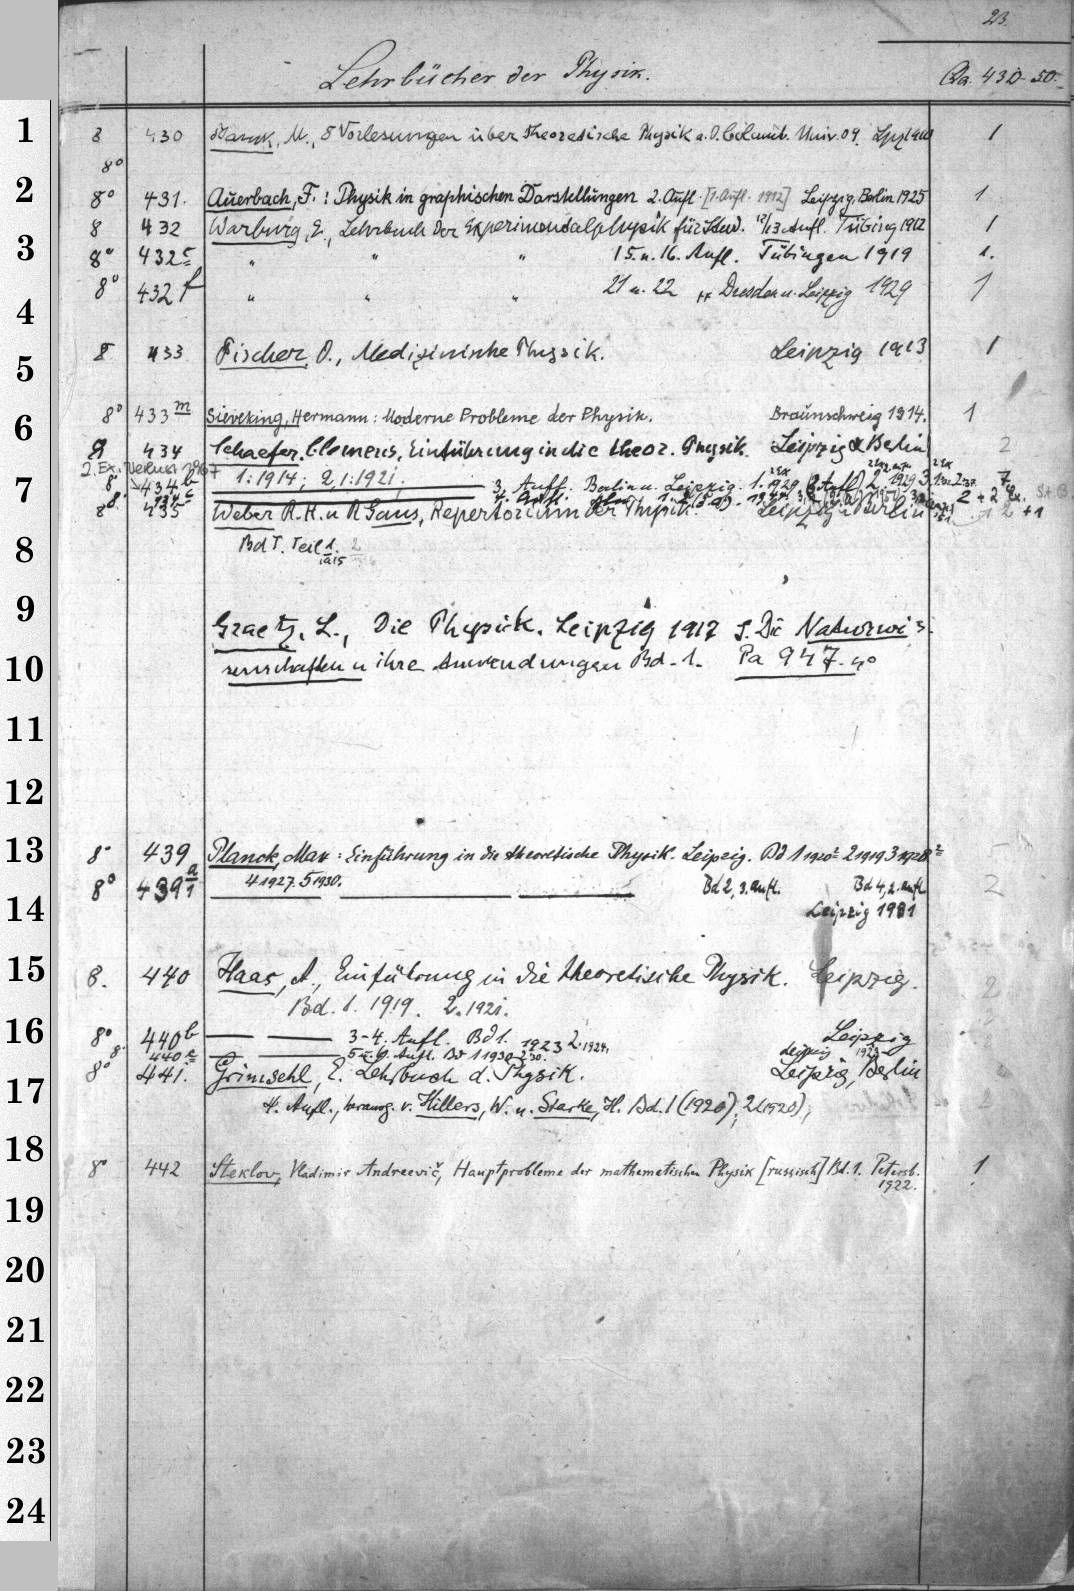 23.
Lehrbücher der Physik. Qa. 430-50.
1 8 430 Planck, M., 8 Vorlesungen über theoretische Physik a. d. Columb. Univ. 09. Lpz 1910 1
8°
2 8° 431. Auerbach, F.: Physik in graphischen Darstellungen 2. Aufl. [1. Aufl. 1912] Leipzig, Berlin 1925 1
8 432 Warburg, E., Lehrbuch der Experimentalphysik für Stud. 12/13 Aufl. Tübing 1912 1
3 8° 432 c " " " 15. u. 16. Aufl. Tübingen 1919 1.
8° 432 f " " " 21 u. 22 Dresden u. Leipzig 1929 1
4
5 8 433 Fischer, O., Medizinische Physik. Leipzig 1913 1
6 8° 433 m Sieveking, Hermann: Moderne Probleme der Physik. Braunschweig 1914. 1
8 434 Schaefer, Clemens, Einführung in die theor. Physik. Leipzig & Berlin 2
2. Ex. 1:1914; 2,1:1921,
7 8° 434 b 3. Aufl. Berlin u. Leipzig. 1. 1929 2, 1929
8° 434 c 4. Aufl.
8° 435 Weber R. H. u R Gans, Repertorium der Physik. Leipzig u Berlin
8 Bd I. Teil 1. 2
1915
9 Graetz, L., Die Physik. Leipzig 1917 s. Die Naturwis-
10 senschaften u ihre Anwendungen Bd. 1. Pa 947. 4°
11
12
13 8° 439 Planck, Max: Einführung in die theoretische Physik. Leipzig. Bd 1 1920² 2 1919 3 1928²
4 1927. 5 1930.
8° 439 a/1 Bd 2, 3. Aufl. Bd 4, 2. Aufl 2
14 Leipzig 1931
15 8. 440 Haas, A., Einführung in die theoretische Physik. Leipzig. 2
Bd. 1. 1919. 2. 1921.
16 8° 440 b 3-4. Aufl. Bd 1. 1923 2. 1924. Leipzig
8° 440 c 5-6. Aufl. Bd 1 1930 2 30. Leipzig
8° 441. Grimsehl, E. Lehrbuch d. Physik. Leipzig, Berlin
17 4. Aufl., herausg. v. Hillers, W. u. Starke, H. Bd. 1 (1920); 2 (1920),
18 8° 442 Steklov, Vladimir Andreevič, Hauptprobleme der mathemetischen Physik [russisch] Bd. 1. Petersb. 1
1922.
19
20
21
22
23
24